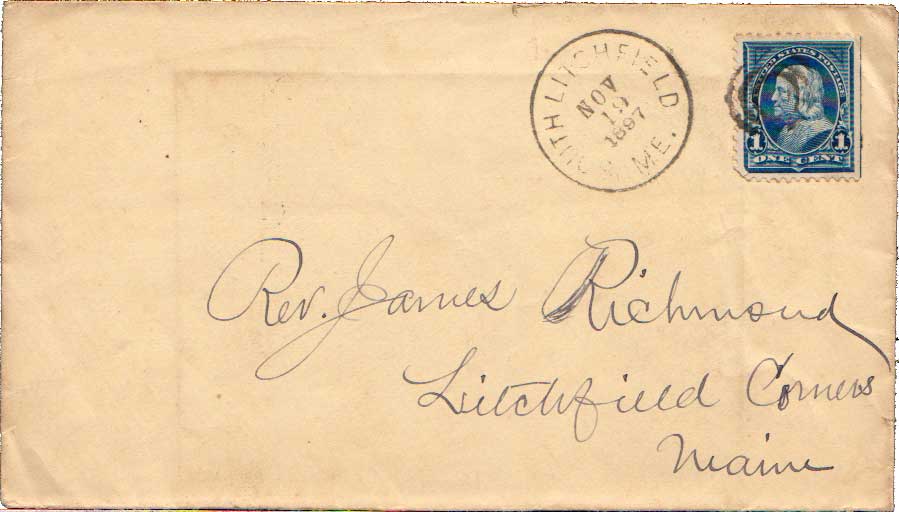 SOUTH LITCHFIELD ME.
NOV
19
1897
UNITED STATES POSTAGE
1 1
ONE CENT
Rev. James Richmond
Litchfield Corners
Maine